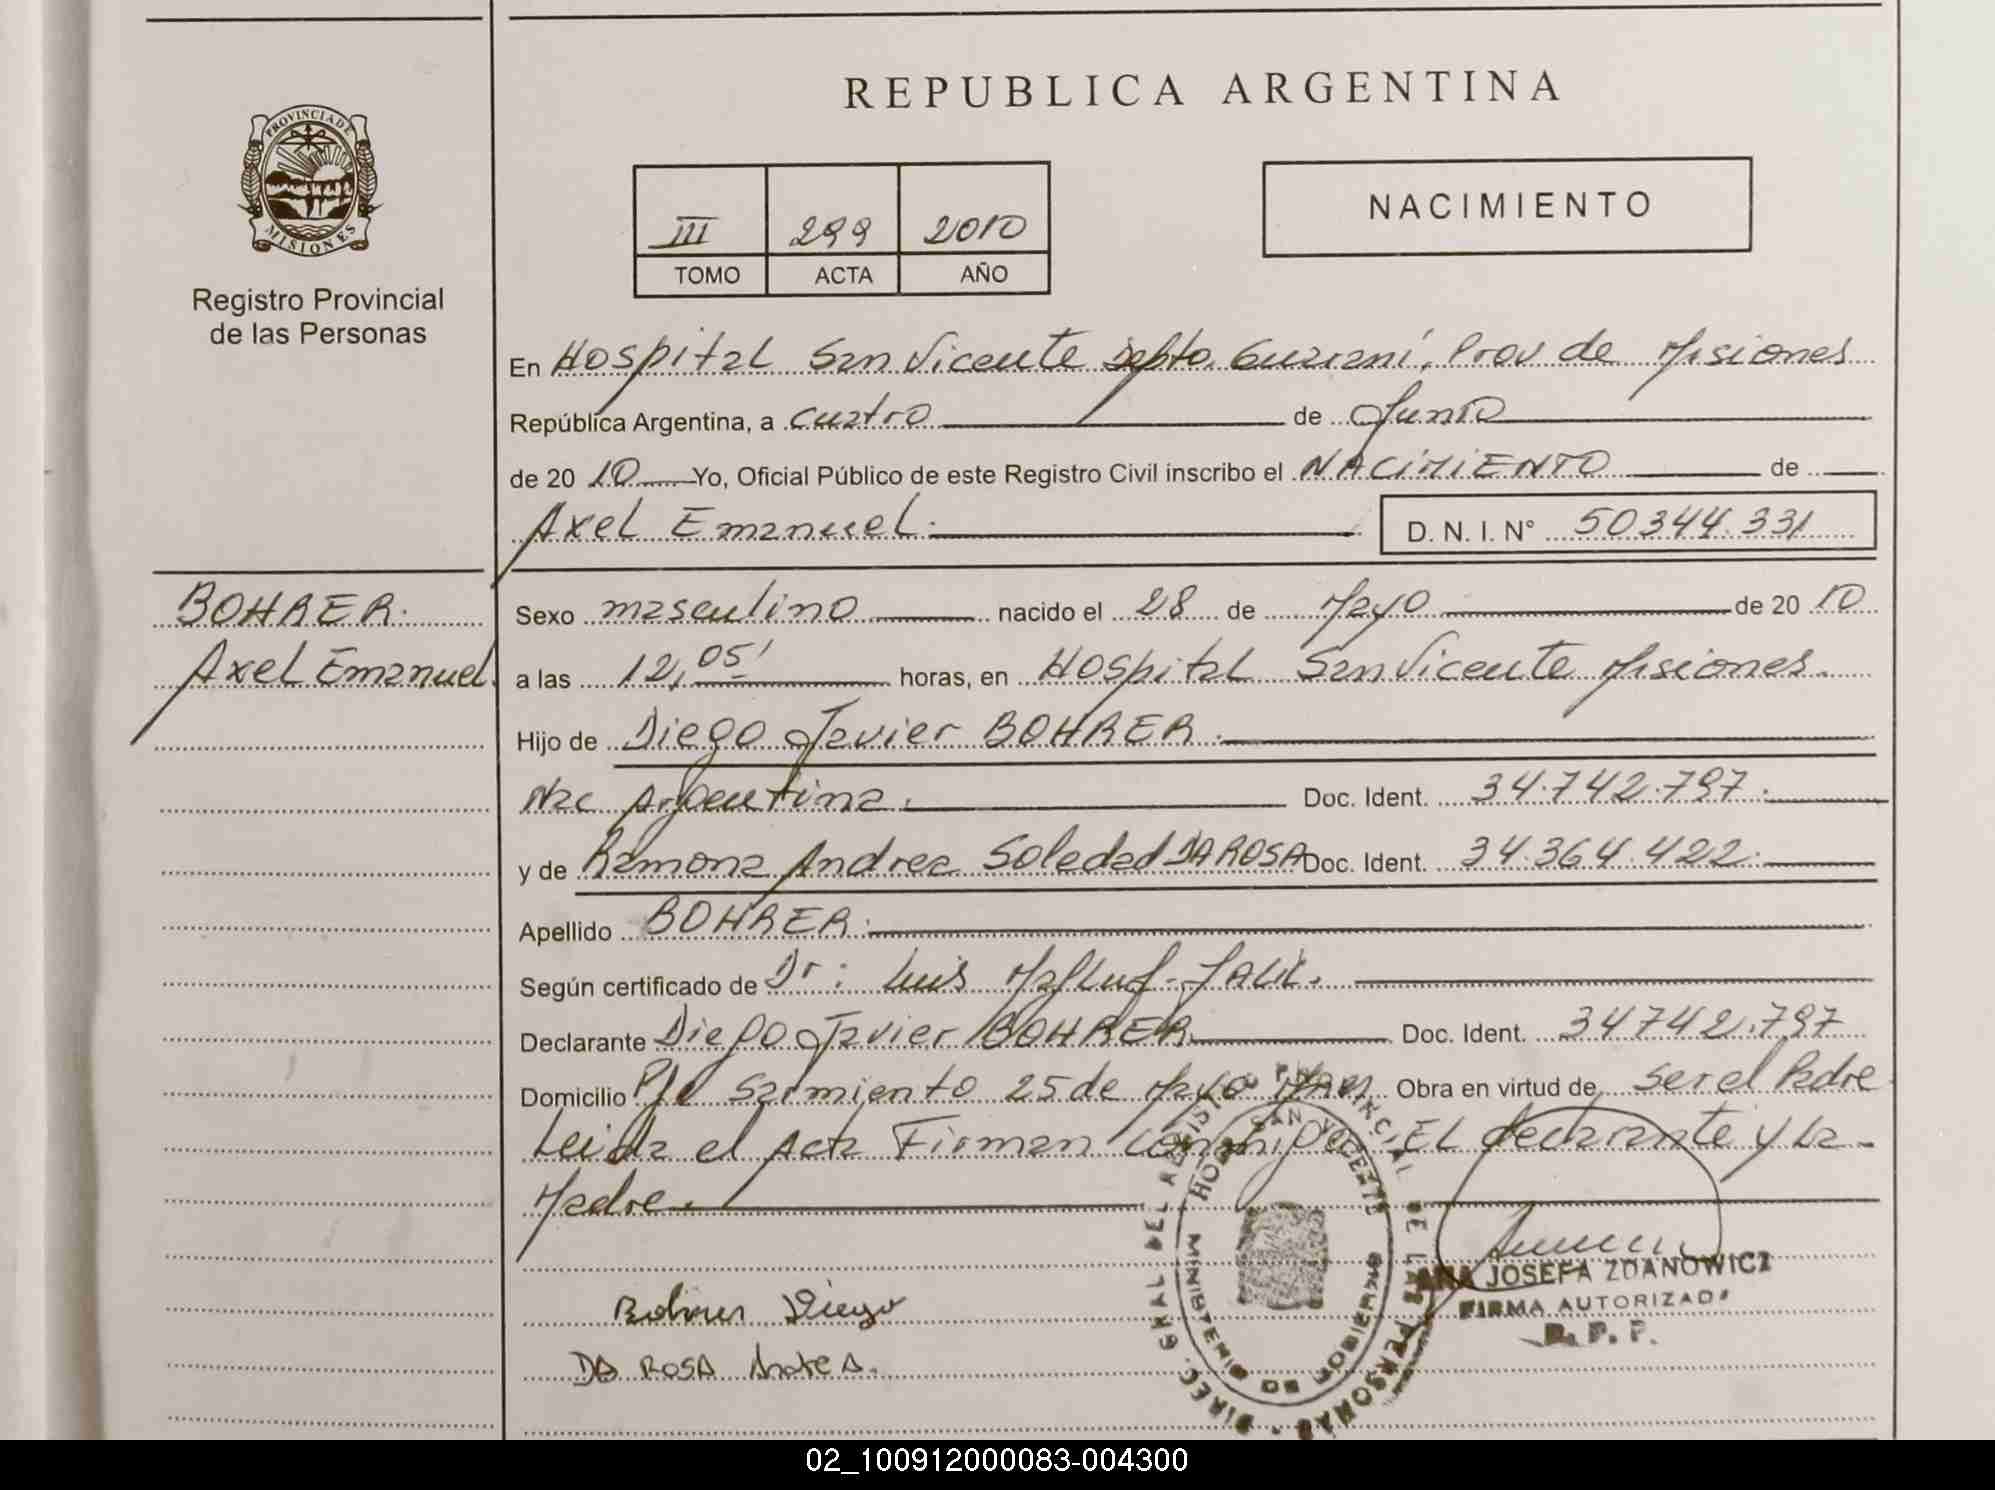 REPUBLICA ARGENTINA
PROVINCIA DE
MISIONES
Registro Provincial
de las Personas
III 299 2010
TOMO ACTA AÑO
NACIMIENTO
En Hospital San Vicente Depto. Guaraní, Prov de Misiones
República Argentina, a cuatro de Junio
de 20 10 Yo, Oficial Público de este Registro Civil inscribo el NACIMIENTO de
Axel Emanuel. D. N. I. N° 50344.331
BOHRER.
Axel Emanuel.
Sexo masculino nacido el 28 de Mayo de 20 10
a las 12,05' horas, en Hospital San Vicente Misiones.
Hijo de Diego Javier BOHRER.
Nac Argentina. Doc. Ident. 34.742.797.
y de Ramona Andrea Soledad DA ROSA Doc. Ident. 34.364.422.
Apellido BOHRER.
Según certificado de Dr: Luis
Declarante Diego Javier BOHRER Doc. Ident. 34742.797
Domicilio Sarmiento 25 de Mayo Obra en virtud de ser el Padre
Leida el Acta Firman conmigo, EL declarante y La
Madre.
Diego
DA ROSA Andrea.
DIREC. GRAL DEL REGISTRO PROVINCIAL DE LAS PERSONAS
HOSP. SAN VICENTE
MINISTERIO DE GOBIERNO
ANA JOSEFA ZDANOWICZ
FIRMA AUTORIZADA
R. P. P.
02_100912000083-004300